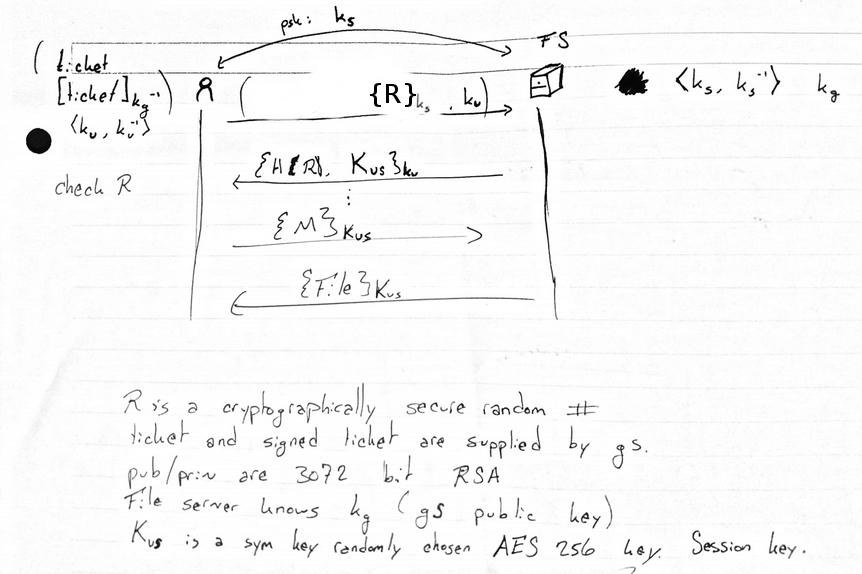 psk: ks
FS
( ticket
[ticket]kg⁻¹ )
( {R}ks , ku )
<ks, ks⁻¹> kg
<ku, ku⁻¹>
{H(R), Kus}ku
check R
⋮
{M}Kus
{File}Kus
R is a cryptographically secure random #
ticket and signed ticket are supplied by gs.
pub/priv are 3072 bit RSA
File server knows kg (gs public key)
Kus is a sym key randomly chosen AES 256 key. Session key.